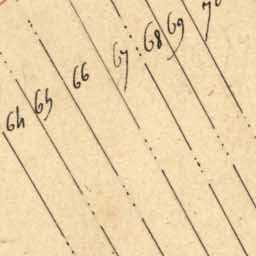 64 65 66 67 68 69 70